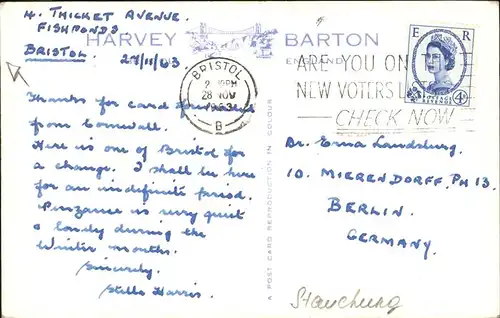 4. THICKET AVENUE.
FISHPONDS
BRISTOL.
27/11/63
HARVEY BARTON
ENGLAND
BRISTOL
28 NOV
B
ARE YOU ON
NEW VOTERS
CHECK NOW
E R
POSTAGE REVENUE
4D
Thanks for card
from Cornwall.
Here is one of Bristol for
a change. I shall be here
for an indefinite period.
Penzance is very quiet
& lonely during the
Winter months.
Sincerely,
Stella Harris.
A POST CARD REPRODUCTION IN COLOUR
Dr. Erna Landsburg.
10. MIERENDORFF. PH 13.
BERLIN.
GERMANY.
Stauchung